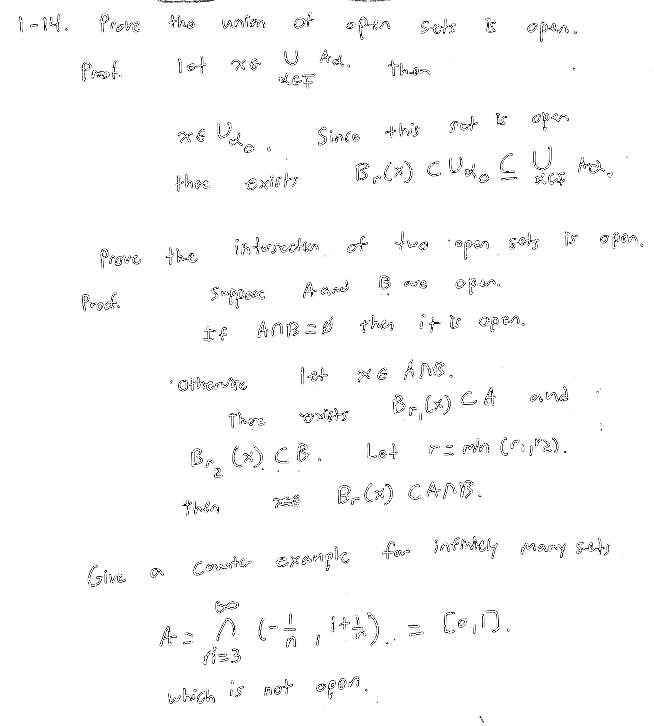 1-14. Prove the union of open sets is open.
Proof. let x∈ ∪ Aα. Then
α∈F
x∈ Uα₀. Since this set is open
there exists Bᵣ(x) ⊂ Uα₀ ⊆ ∪ Aα.
α∈F
Prove the intersection of two open sets is open.
Proof. Suppose A and B are open.
If A∩B=∅ then it is open.
Otherwise let x∈ A∩B.
There exists Bᵣ₁(x) ⊂ A and
Bᵣ₂(x) ⊂ B. Let r = min (r₁,r₂).
then Bᵣ(x) ⊂ A∩B.
Give a counter example for infinitely many sets
A = ∩ (-1/n , 1+1/n) = [0,1].
∞
n=3
which is not open.